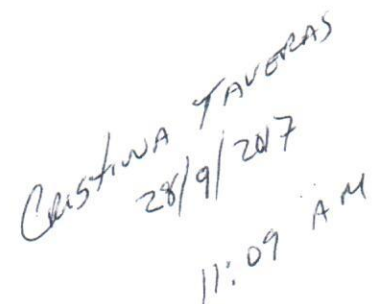 CRISTINA TAVERAS
28/9/2017
11:09 AM